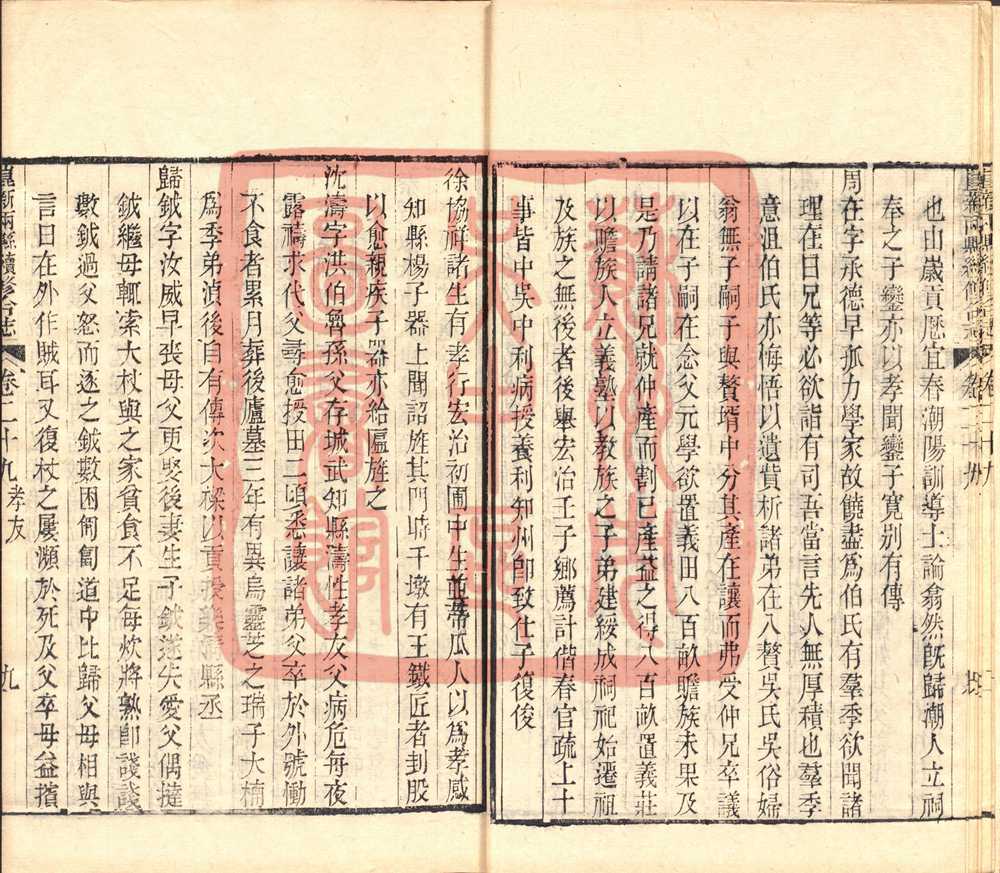 也由歲貢歷宜春潮陽訓導士論翕然旣歸潮人立祠
奉之子鑾亦以孝聞鑾子寬別有傳
周在字承德早孤力學家故饒盡爲伯氏有羣季欲聞諸
理在曰兄等必欲詣有司吾當言先人無厚積也羣季
意沮伯氏亦悔悟以遺貲析諸弟在入贅吳氏吳俗婦
翁無子嗣子與贅壻中分其產在讓而弗受仲兄卒議
以在子嗣在念父元學欲置義田八百畝贍族未果及
是乃請諸兄就仲產而割已產益之得八百畝置義莊
以贍族人立義塾以教族之子弟建綏成祠祀始遷祖
及族之無後者後舉宏治壬子鄉薦計偕春官疏上十
事皆中吳中利病授養利知州卽致仕子復俊
徐協祥諸生有孝行宏治初圃中生並蒂瓜人以爲孝感
知縣楊子器上聞詔旌其門時千墩有王鐵匠者刲股
以愈親疾子器亦給匾旌之
沈濤字洪伯魯孫父存城武知縣濤性孝友父病危每夜
露禱求代父尋愈授田二頃悉讓諸弟父卒於外號慟
不食者累月葬後廬墓三年有異烏靈芝之瑞子大楠
爲季弟湞後自有傳次大樑以貢授樂清縣丞
歸鉞字汝威早喪母父更娶後妻生子鉞遂失愛父偶撻
鉞繼母輒索大杖與之家貧食不足每炊將熟卽諓諓
數鉞過父怒而逐之鉞數困匍匐道中比歸父母相與
言曰在外作賊耳又復杖之屢瀕於死及父卒母益擯
崑新兩縣續修合志 卷二十九 孝友 九